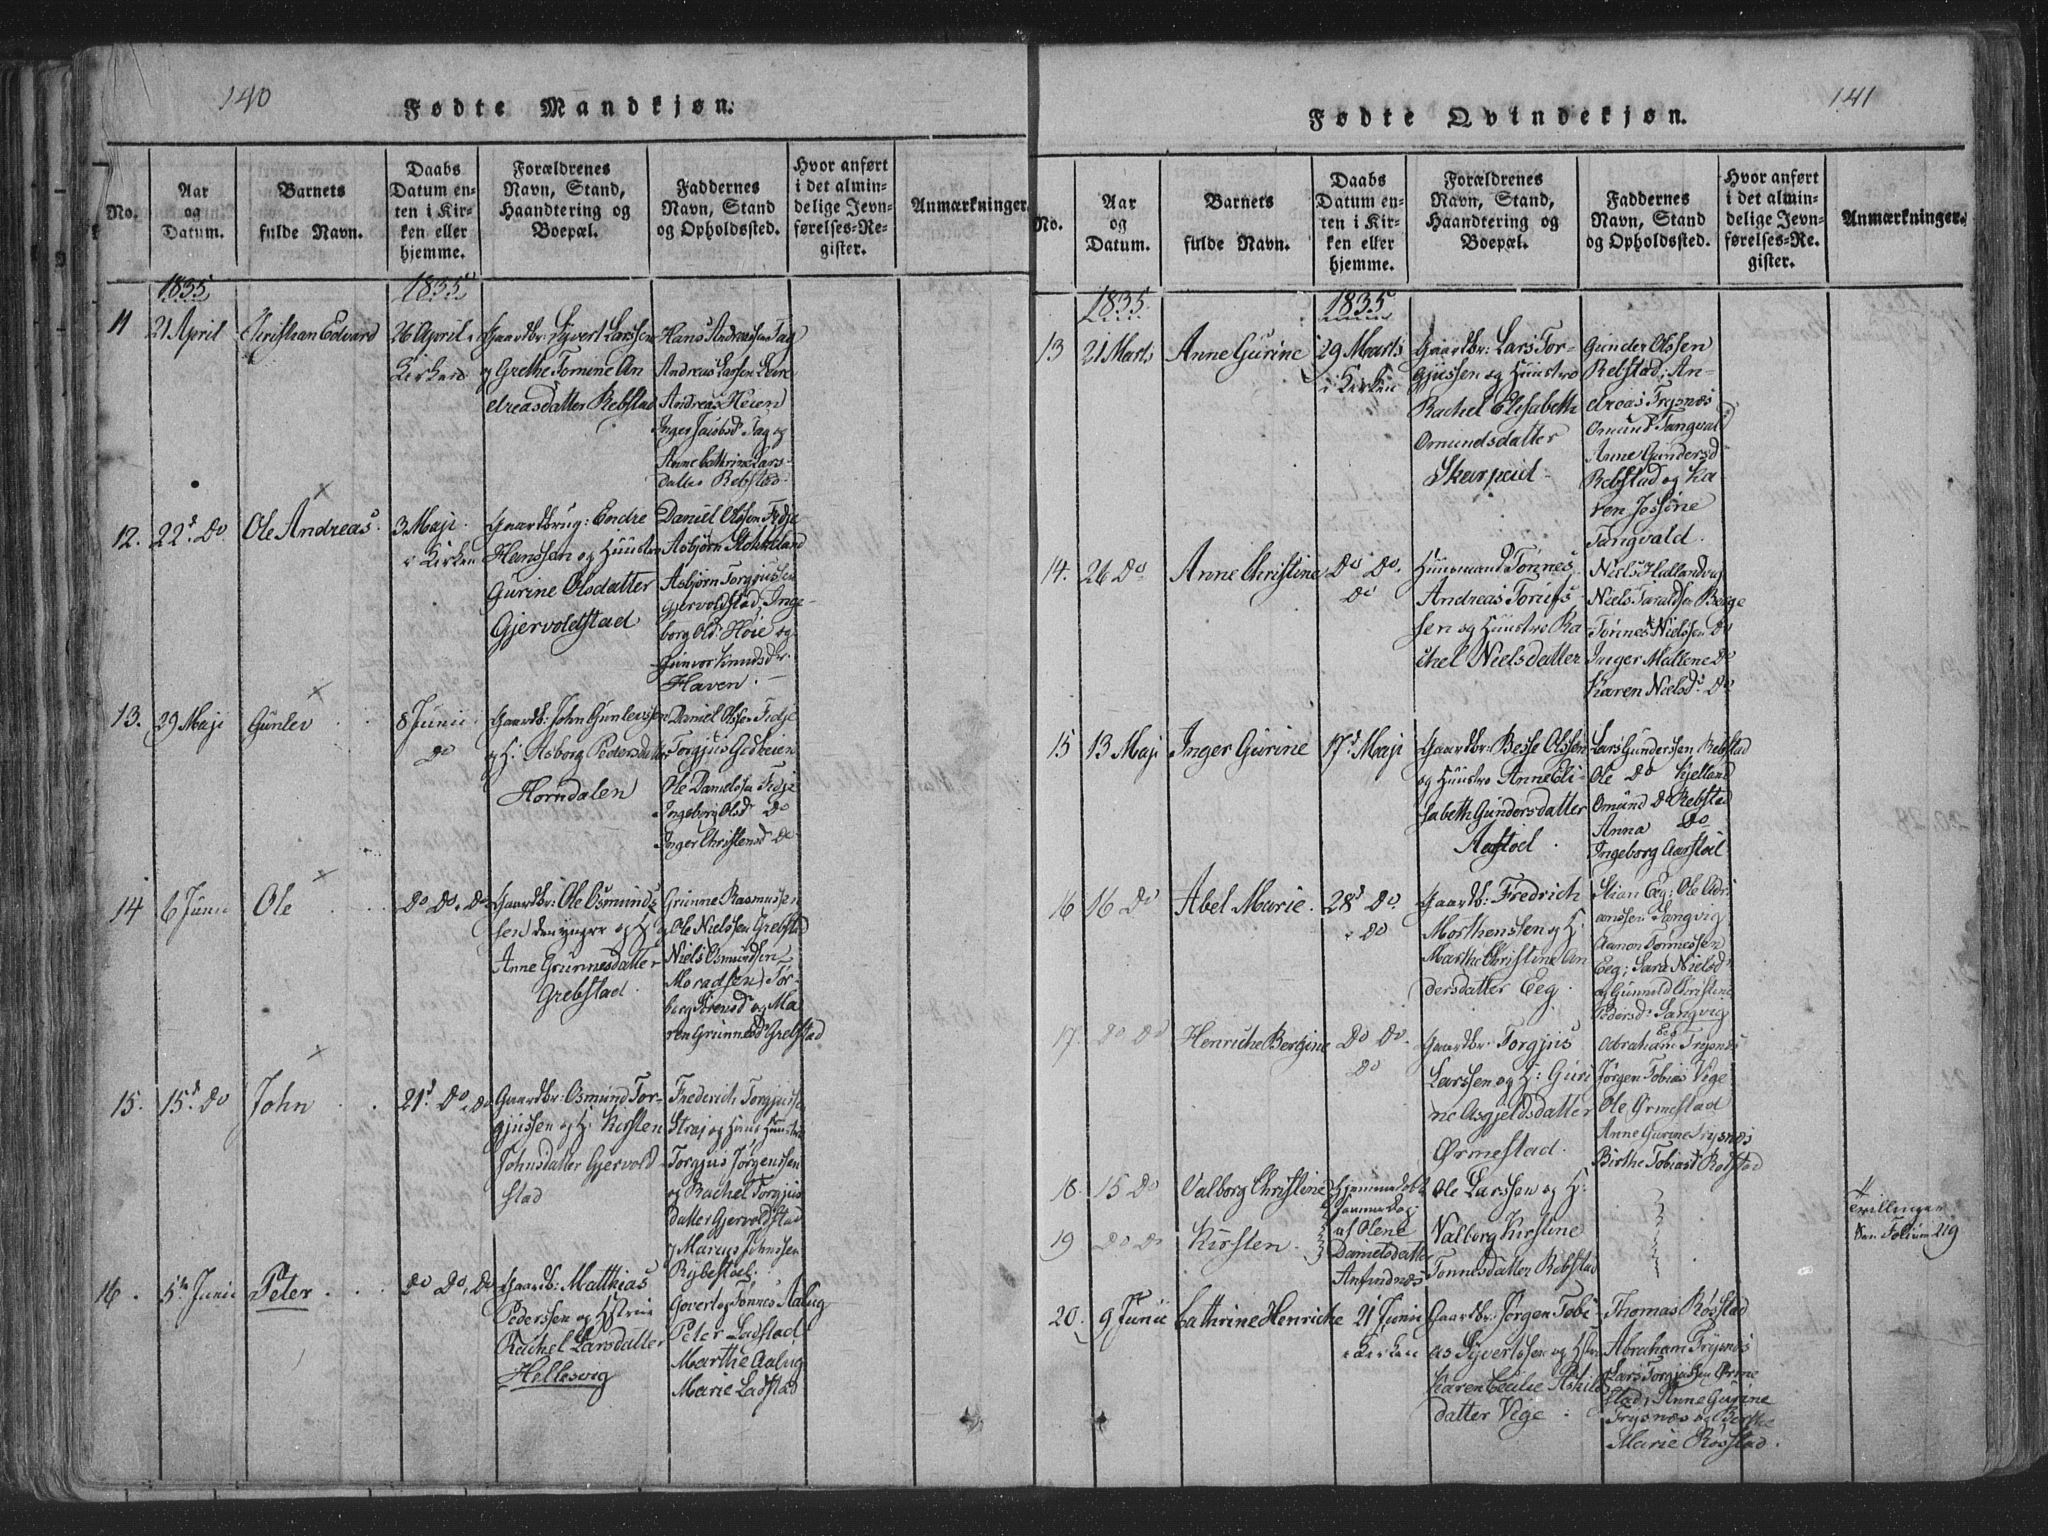 140
Fødte Mandkjøn.
No.
Aar
og
Datum.
Barnets
fulde Navn.
Daabs
Datum en-
ten i Kir-
ken eller
hjemme.
Forældrenes
Navn, Stand,
Haandtering og
Boepæl.
Faddernes
Navn, Stand
og Opholdssted.
Hvor anført
i det almin-
delige Jevn-
førelses-Re-
gister.
Anmærkninger.
1835
1835
11
21 April
Christian Edvard
26 April i
Kirken
Gaardbr: Syvert Larssen
og Grethe Tomine An
dreasdatter Rebstad
Hans Andreassen Tag
Andreas Larssen
Andreas Heien
Inger Jacobsd Tag og
Anne Cathrine Lars-
datter Rebstad.
12.
22d Do
Ole Andreas
3 Maji
i Kirken
Gaardbrug: Endre
Hanssen og Huustro
Gurine Olsdatter
Gjervoldstad
Daniel Olssen Fidje
Asbjørn Stokkeland
Asbjørn Torgjussen
Gjervoldstad, Inge-
borg Olsd: Høie og
Gunvor Knudsdr
Haven.
13.
29 Maji
Gunlev
8 Junii
Do
Gaardb: John Gunlevssen
og H: Asborg Pedersdatter
Horndalen
Daniel Olssen Fidje
Torgjus
Ole Danielssen Fidje
Ingeborg Olsd Do
Inger Christensd Do
14
6 Junii
Ole
Do Do i Do
Gaardbr: Ole Osmunds
sen den yngre og H:
Anne Grunnesdatter
Grebstad.
Grunne Rasmussen
og Ole Nielssen Grebstad
Niels Osmundsen
Tor-
borg Sørensd og Ma
ren Grunnesd Grebstad
15.
15d Do
John
21d Do i Do
Gaardbr: Osmund Tor-
gjussen og H: Kirsten
Johnsdatter Gjervold
stad
Frederich Torgjussen
Straj og Hans Huustro
Torgjus Jørgenssen
og Rachel Torgjus
datter Gjervoldstad
Marcus Johnssen
Rybestoel.
16.
5te Junii
Peter
Do Do i Do
Gaardb: Matthias
Pederssen og Hstrue
Rachel Larsdatter
Hellesvig
Govert og Tønnes Aalug
Peter Ladstad
Marthe Aalug
Marie Ladstad
141
Fødte Qvindekjøn.
No.
Aar
og
Datum.
Barnets
fulde Navn.
Daabs
Datum en-
ten i Kir-
ken eller
hjemme.
Forældrenes
Navn, Stand,
Haandtering og
Boepæl.
Faddernes
Navn, Stand
og Opholdssted.
Hvor anført
i det almin-
delige Jevn-
førelses-Re-
gister.
Anmærkninger.
1835
1835
13
21 Marts
Anne Gurine
29 Marts
i Kirken
Gaardbr: Lars Tor-
gjussen og Huustro
Rachel Elisabeth
Omundsdatter
Skarpeid
Gunder Olssen
Rebstad, An-
dreas Trysnæs
Omund Tangvald
Anne Gundersd
Rebstad og Ka
ren Jossine
Tangvald.
14.
26 Do
Anne Christine
Do Do
Do
Huusmand Tønnes
Andreas Torius
sen og Huustro Ra
chel Nielsdatter
Niels Hallandvig
Niels Taraldsen Berge
Tønnes Nielssen Do
Inger Mallene Do
Karen Nielsd: Do
15
13 Maji
Inger Gurine
17d Maji
Gaardbr: Besse Olssen
og Huustro Anne Eli-
sabeth Gundersdatter
Aastoel.
Lars Gunderssen Rebstad
Ole Do Kjelland
Omund Do Rebstad
Anna Do
Ingeborg Aarstoel
16
16 Do
Abel Marie
28d Do
i Do
Gaardb: Fredrich
Morthenssen og H:
Marthe Christine An
dersdatter Eeg.
Stian Eeg: Ole Adri
anssen Sangvig
Aanon Tønnessen
Eeg; Sara Nielsd
og Gunnild Christine
Pedersd: Sangvig
17.
Do Do
Henriche Bergine
Do Do
Do
Gaardbr: Torgjus
Larssen og H: Guri
ne Asgjeldsdatter
Ørmestad.
Abraham Trysnæs
Jørgen Tobias Vige
Ole Ørmestad
Anne Gurine Trysnæs
Birthe Tobiasd Rosstad
18.
15 Do
Valborg Christine
Hjemmedøbt
samme Dag
af Olene
Danielsdatter
Amfindnæs
Ole Larssen og H:
Valborg Kirstine
Tønnesdatter Rebstad
Tvillinger
Folium 219
19
Do Do
Kirsten.
20.
9 Junii
Cathrine Henriche
21 Junii
i Kirken
Gaardbr: Jørgen Tobi-
as Syvertssen og Hstro
Karen Cecilie Askild
datter Vige
Thomas Rosstad
Abraham Trysnæs
Lars Torgjussen Ørme
stad, Anne Gurine
Trysnæs og Berthe
Marie Rosstad.